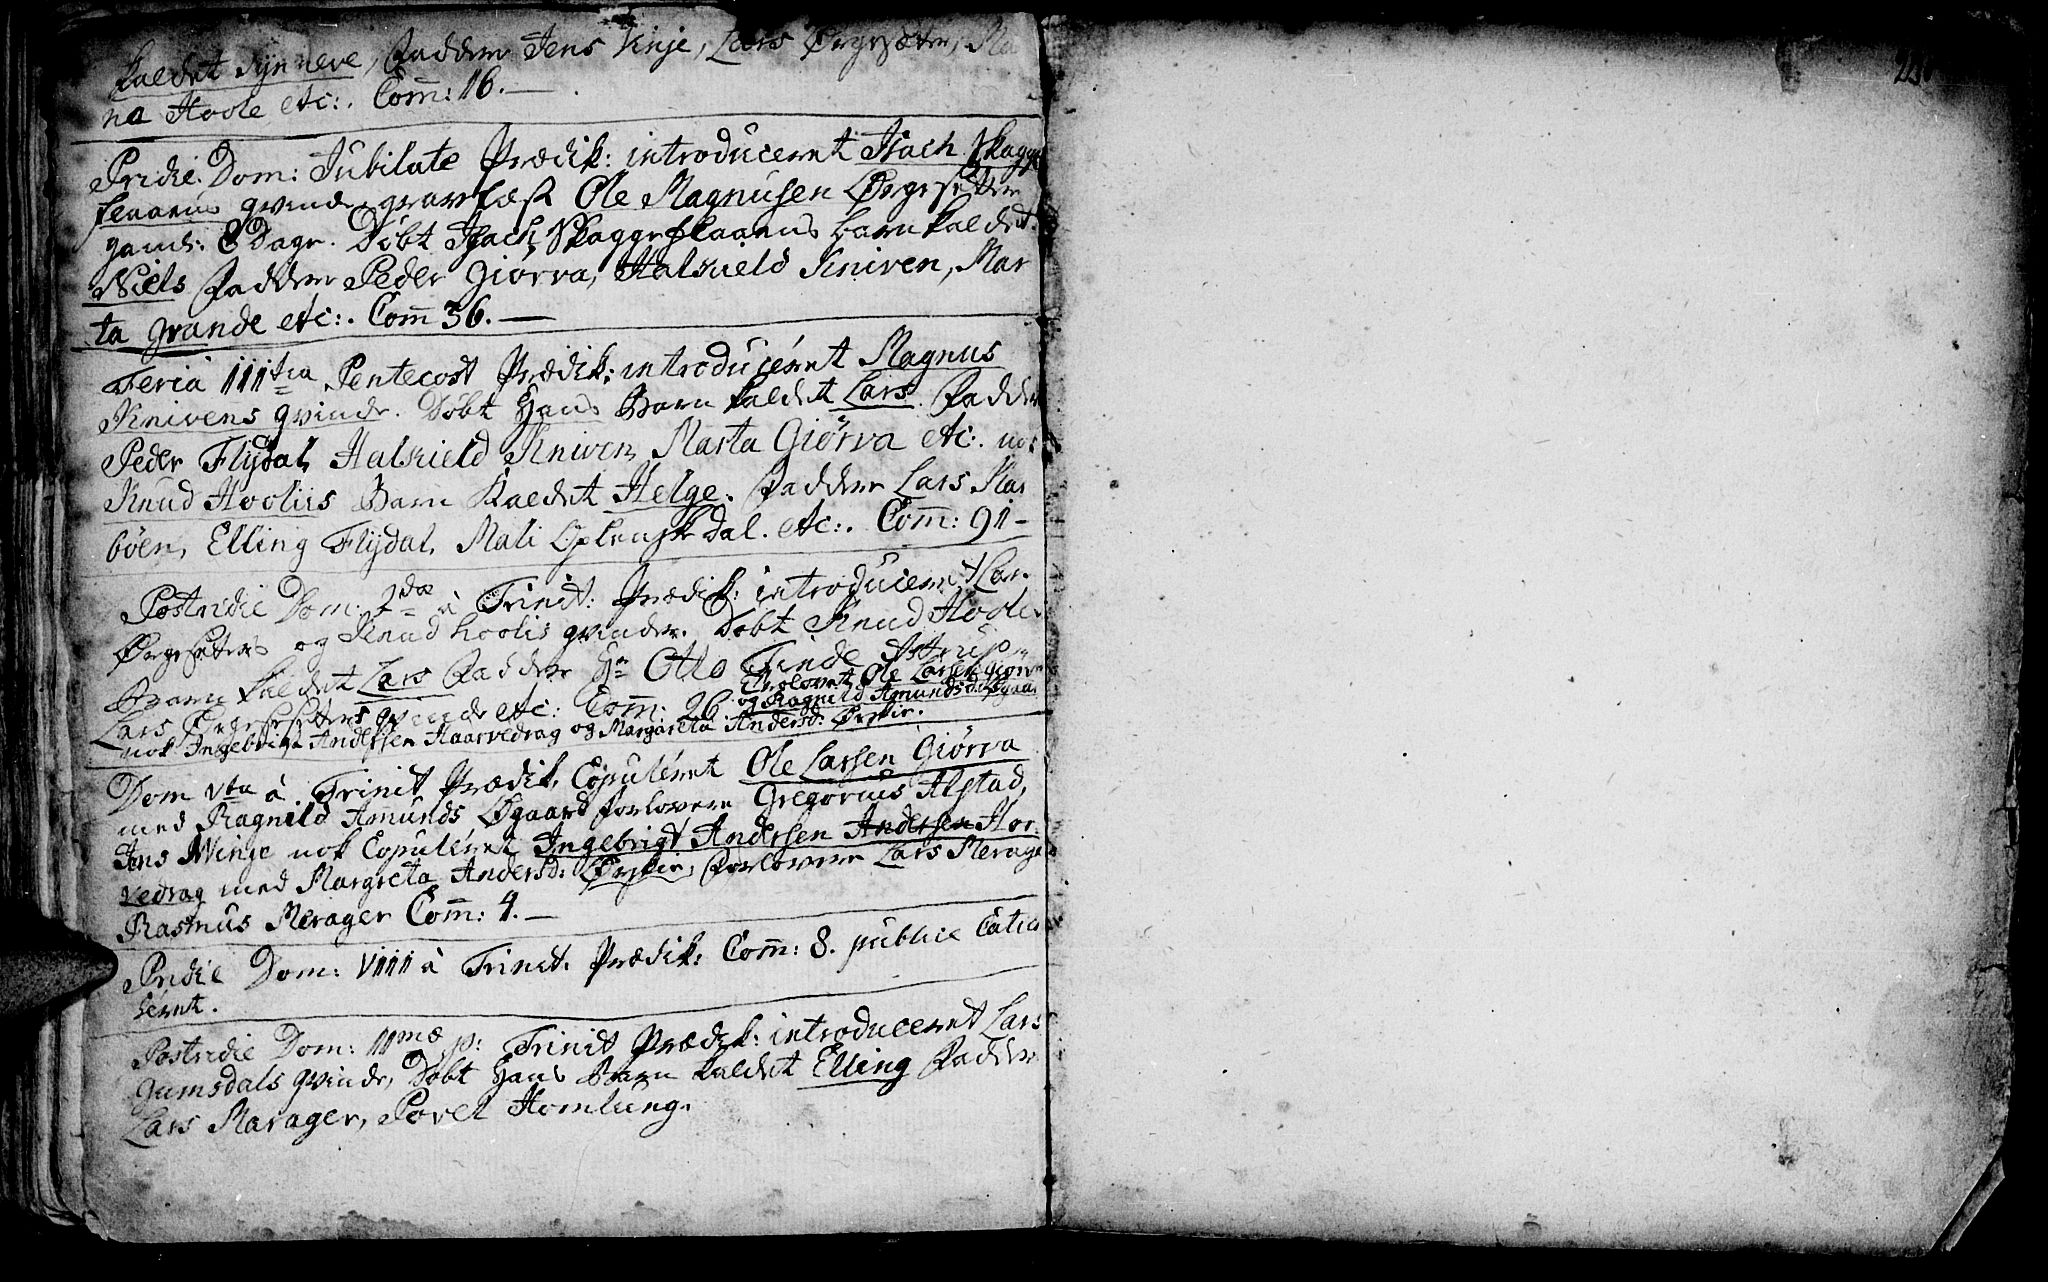 kaldet Synneve, Faddere Jens Vinje, Lars Ørgesæter, Ma
na Hoole etc:. Com̄: 16. —
Pridie. Dom: Jubilate Prædik: introduceret Isach Skagge
flaaens qvinde, græsfæst Ole Magnusen Ørgesetter
gaml: 8 Dage. Døbt Isach Skaggeflaaens barn kaldet
Niels Faddere Peder Giørva, Halsield Kniven, Mar
ta grande etc:. Com̄ 36. —
Feria IIItia Pentecost Prædik: introduceret Magnus
Knivens qvinde. Døbt Hans Barn kaldet Lars. Fadder
Peder Flijdal, Halsield Kniven, Marta Giørva etc:. nok
Knud Hoolis Barn Kaldet Helge. Faddere Lars Kar
bøen, Elling Flijdal, Mali Oplenskedal. etc:. Com̄: 91 —
Postridie Dom: 2dæ à Trinit: Prædik: introduceret Lar.
Ørgesetters og Knud hoolis qvinder. Døbt Knud Hoole.
Barn kaldet Lars Faddere Hr Otto Tinde Astrup
Lars Ørgesetters qvinde etc: Com̄: 26 Trolovet Ole Larsen Giørva
og Ragnild Amundsd: Øgaar
nok Ingebrigt Andersen Haarvedrag og Margareta Andersd: Ørskie.
Dom Vta à Trinit Prædik, Copuleret Ole Larsen Giørva
med Ragnild Amunds Øgaard forlovere Gregorius Alstad,
Jens Winje nok Copuleret Ingebrigt Andersen Andersen Hor:
vedrag med Margreta Andersd: Ørskie, Forlovere Lars Merage
Rasmus Merager Com̄: 4. —
Pridie Dom: VIIII à Trinit. Prædik: Com̄: 8. publice Catic
seret.
Postridie Dom: 11mæ p: Trinit Prædik: introduceret Lars
Jamsdals qvinde, Døbt Hans Barn kaldet Elling Fadder
Lars Marager, Povel Homlung.